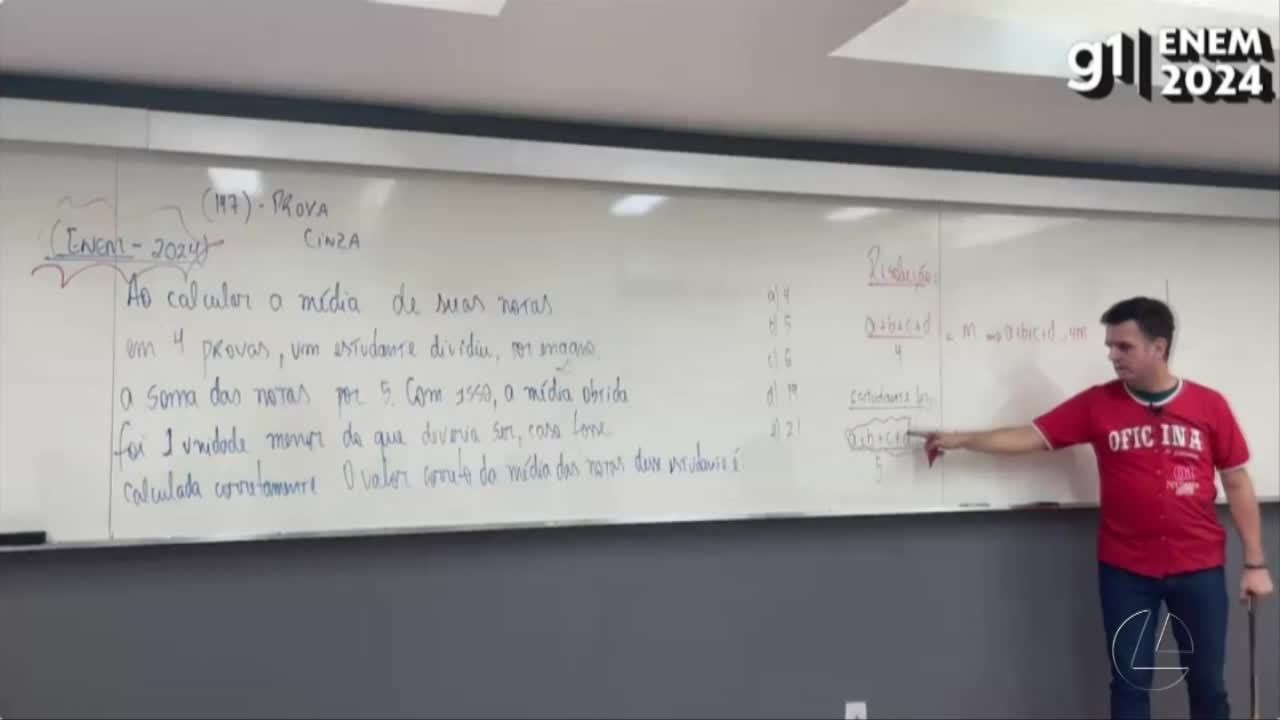 g1 ENEM
2024
(147) - PROVA
CINZA
(ENEM - 2024)
Ao calcular a média de suas notas
em 4 provas, um estudante dividiu, por engano,
a soma das notas por 5. Com isso, a média obtida
foi 1 unidade menor do que deveria ser, caso fosse
calculada corretamente O valor correto da média das notas desse estudante é
a) 4
b) 5
c) 6
d) 19
e) 21
Resolução:
a+b+c+d = M a+b+c+d = 4M
4
Estudante
a+b+c+d
5
OFICINA